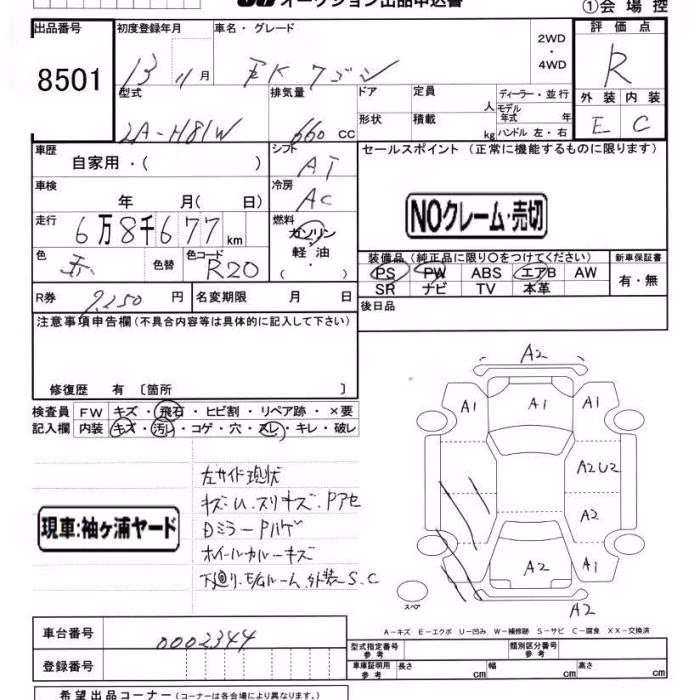 オークション出品申込書 ①会場控
出品番号 初度登録年月 車名・グレード 2WD・4WD 評価点
8501 13 11月 EKワゴン R
型式 排気量 ドア 定員 人 ディーラー・並行 外装 内装
LA-H81W 660 CC 形状 積載 kg モデル年式 年 ハンドル 左・右 E C
車歴 自家用・( ) シフト AT セールスポイント (正常に機能するものに限ります)
車検 年 月( 日) 冷房 AC
NOクレーム・売切
走行 6万8千677km 燃料 ガソリン・軽油・( )
色 赤 色替 色コード R20
装備品 (純正品に限り○をつけてください) 新車保証書
PS PW ABS エアB AW 有・無
SR ナビ TV 本革
R券 9,250 円 名変期限 月 日 後日品
注意事項申告欄 (不具合内容等は具体的に記入して下さい)
修復歴 有 〔箇所 〕
検査員 FW キズ・飛石・ヒビ割・リペア跡・×要
記入欄 内装 キズ・汚れ・コゲ・穴・スレ・キレ・破レ
左サイド現状
キズ・U.スリキズ.Pアセ
DミラーPハゲ
ホイールカバーキズ
下廻り.モロルーム.外装S.C
現車:袖ヶ浦ヤード
A2
A1 A1 A1
A2U2
A2
A2 A1
A2
スペア
A-キズ E-エクボ U-凹み W-補修跡 S-サビ C-腐食 XX-交換済
車台番号 0002344
型式指定番号 参考 類別区分番号 参考
登録番号 車庫証明用 参考 長さ cm 幅 cm 高さ cm
希望出品コーナー (コーナーは各会場により異なります。)